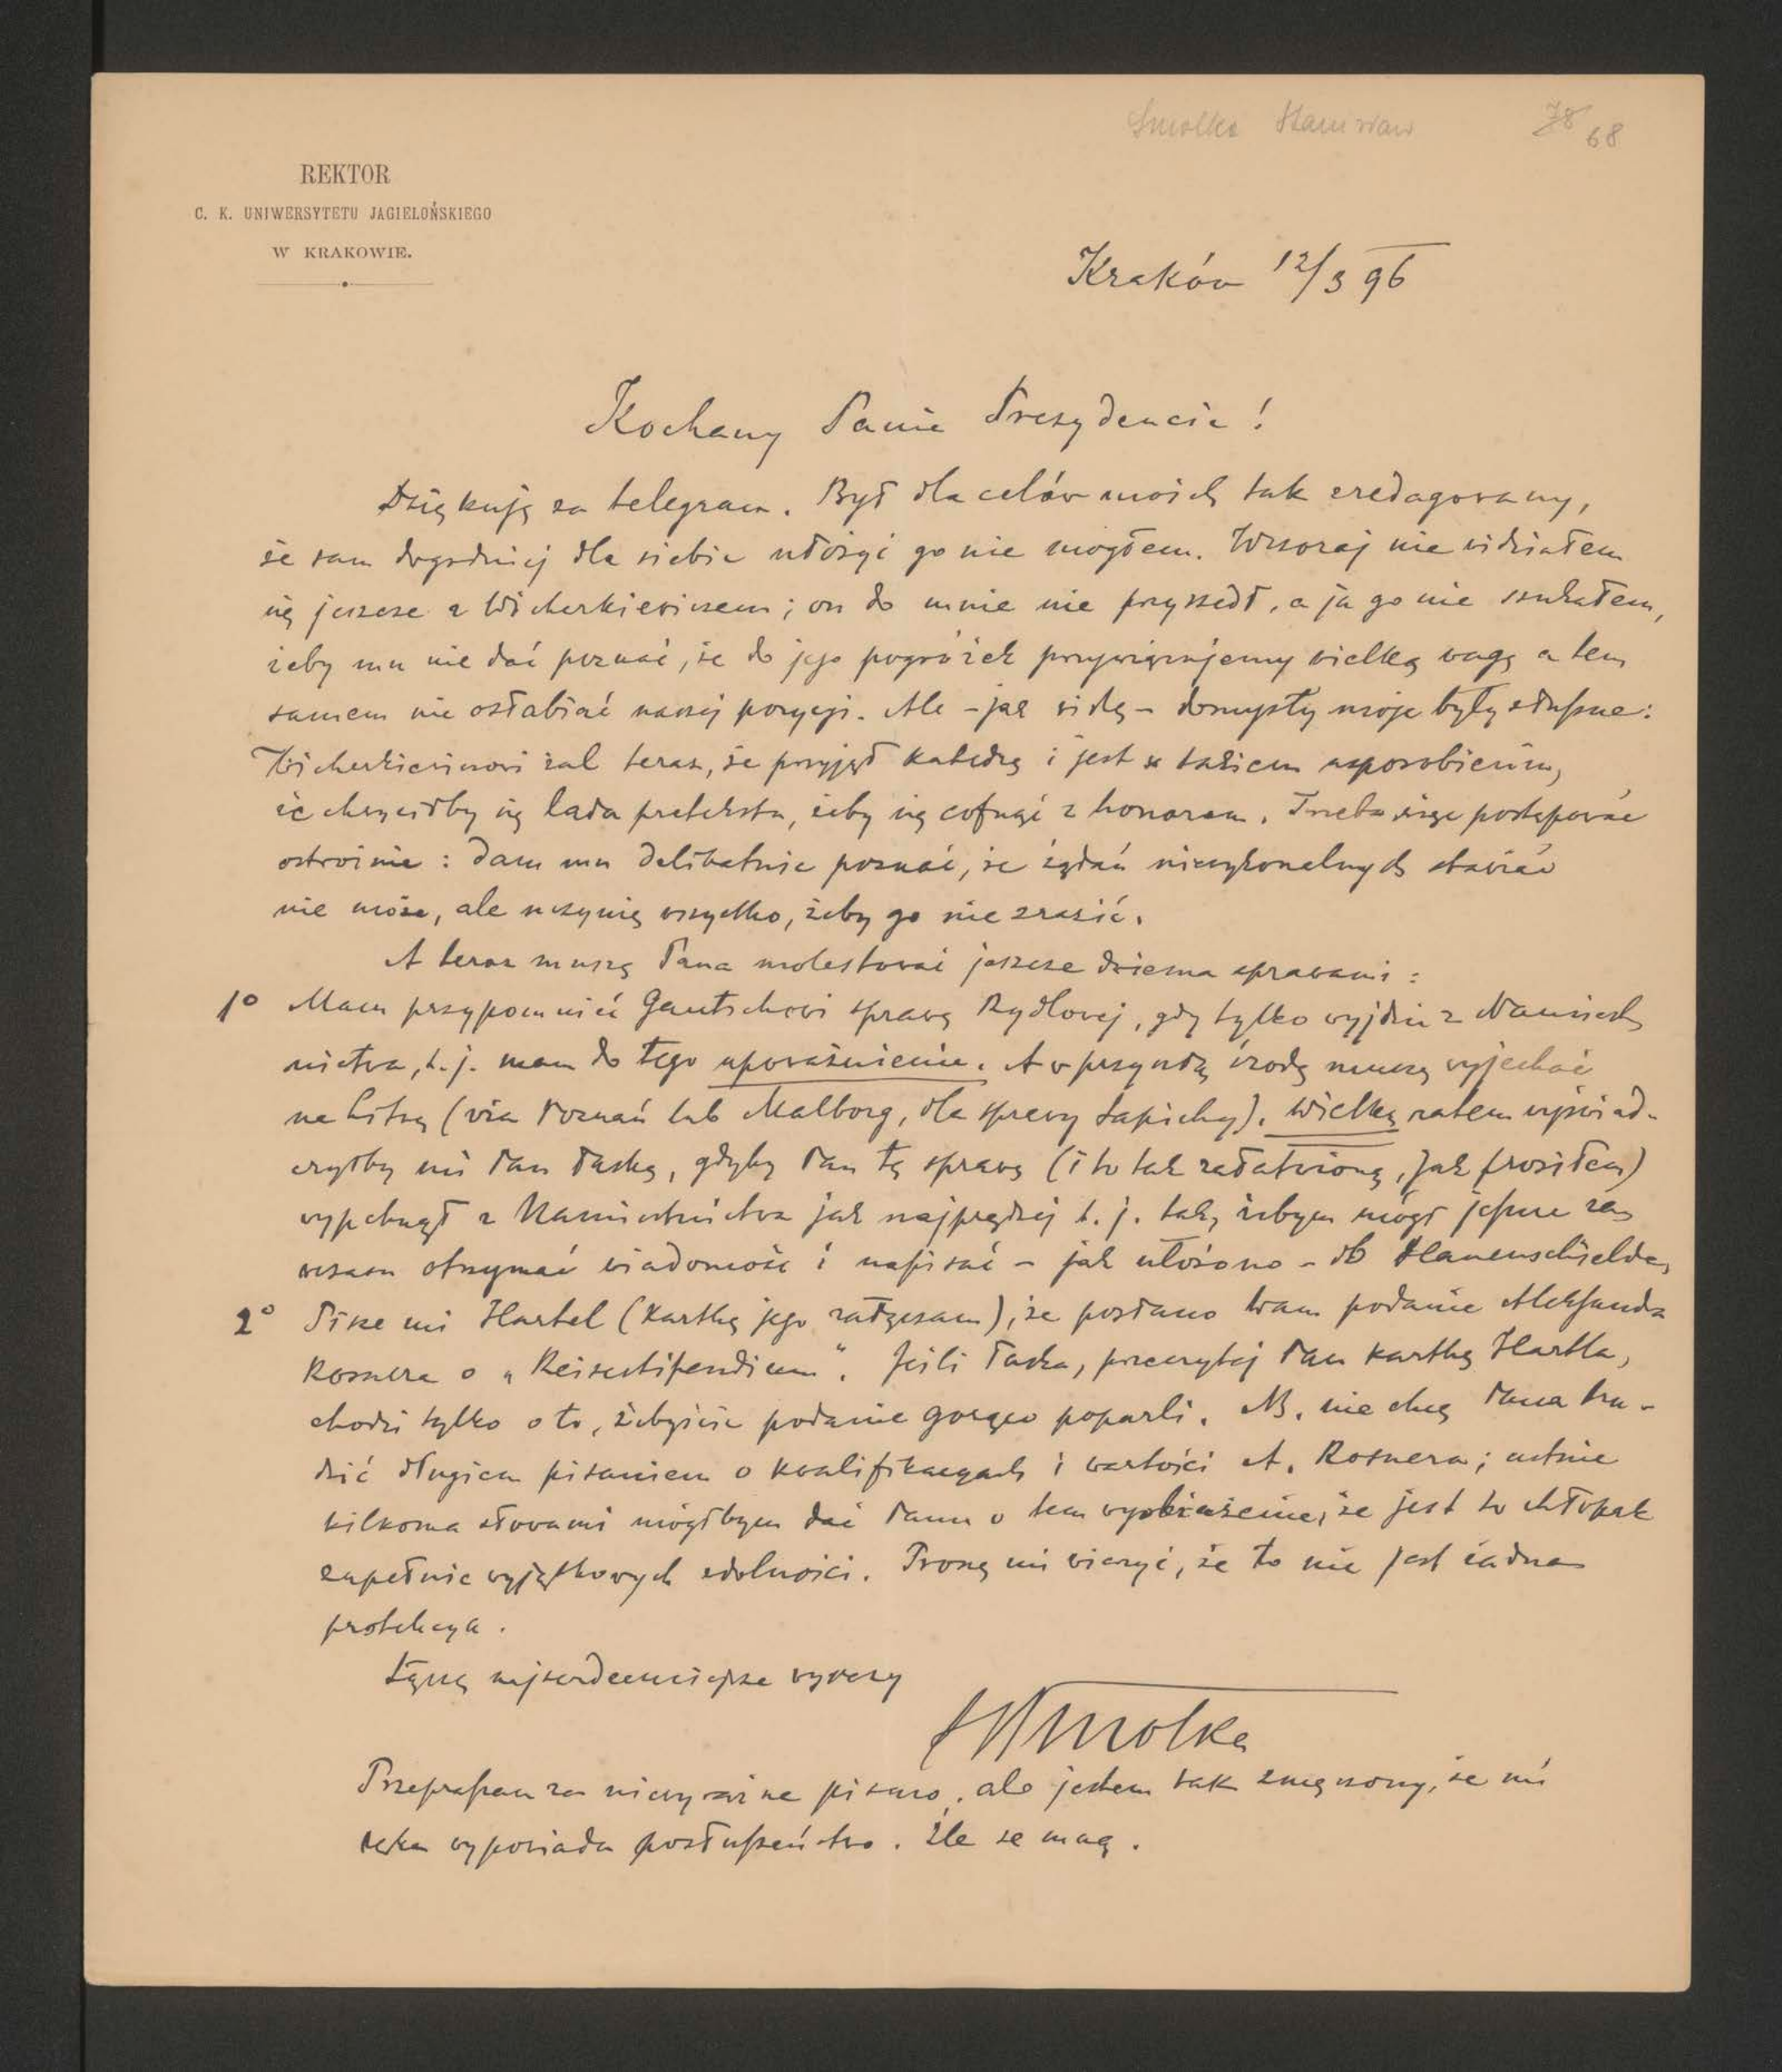 Smolka Stanisław 78 68
REKTOR
C. K. UNIWERSYTETU JAGIELOŃSKIEGO
W KRAKOWIE.
Kraków 12/3 96
Kochany Panie Prezydencie!
Dziękuję za telegram. Był dla celów moich tak zredagowany,
że sam dogodniej dla siebie ułożyć go nie mogłem. Wczoraj nie widziałem
się jeszcze z Wicherkiewiczem; on do mnie nie przyszedł, a ja go nie szukałem,
żeby mu nie dać poznać, że do jego pogróżek przywiązujemy wielką wagę a tem
samem nie osłabiać naszej pozycyi. Ale – jak widzę – domysły moje były słuszne:
Wicherkiewiczowi żal teraz, że przyjął katedrę i jest w takiem usposobieniu,
że chwyciłby się lada pretekstu, żeby się cofnąć z honorem. Trzeba więc postępować
ostrożnie: dam mu delikatnie poznać, że żądań niewykonalnych stawiać
nie może, ale uczynię wszystko, żeby go nie zrazić.
A teraz muszę Pana molestować jeszcze dwiema sprawami:
1° Mam przypomnieć Gautschowi sprawę Rydlowej, gdy tylko wyjdzie z Namiest
nictwa, t. j. mam do tego upoważnienie. A w przyszłą środę muszę wyjechać
na Litwę (via Poznań lub Malborg, dla sprawy Sapiehy). Wielką zatem wyświad-
czyłby mi Pan łaskę, gdyby Pan tę sprawę (i to tak załatwioną, jak prosiłem)
wypchnął z Namiestnictwa jak najprędzej t. j. tak, żebym mógł jeszcze za
wczasu otrzymać wiadomość i napisać – jak ułożono – do
2° Pisze mi Hartel (kartkę jego załączam), że posłano Wam podanie Aleksandra
Rosnera o „Reisestipendium". Jeśli łaska, przeczytaj Pan kartkę Hartla,
chodzi tylko o to, żebyście podanie gorąco poparli. NB. nie chcę Pana tru-
dzić długiem pisaniem o kwalifikacyach i wartości A. Rosnera; ustnie
kilkoma słowami mógłbym dać Panu o tem wyobrażenie, że jest to chłopak
zupełnie wyjątkowych zdolności. Proszę mi wierzyć, że to nie jest żadna
protekcya.
Łączę najserdeczniejsze wyrazy
SSmolka
Przepraszam za niewyraźne pismo, ale jestem tak zmęczony, że mi
ręka wypowiada posłuszeństwo. Źle się mam.